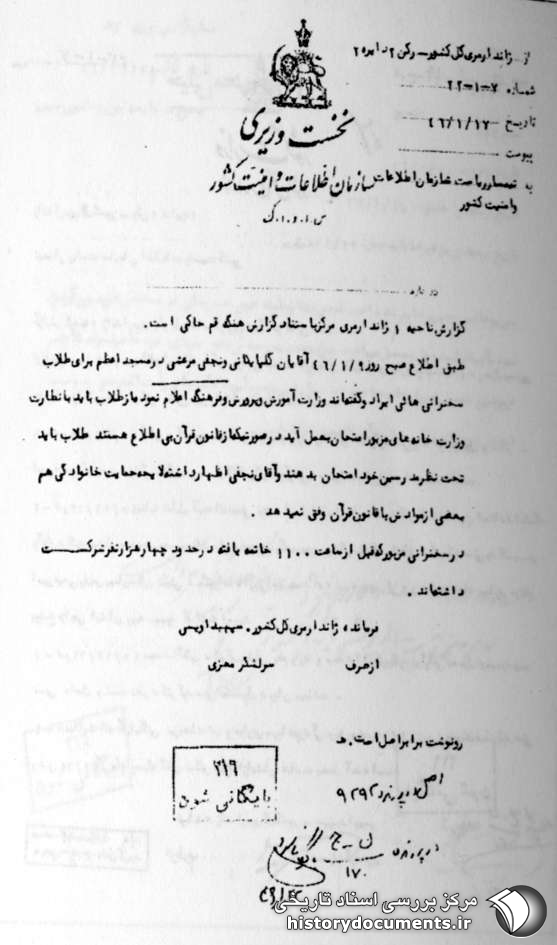 از: ژاندارمری کل کشور - رکن ۲ دایره ۲
شماره ۷-۱-۲۲
تاریخ ۴۶/۱/۱۷
پیوست
نخست وزیری
به تیمسار ریاست سازمان اطلاعات
و امنیت کشور
سازمان اطلاعات و امنیت کشور
س.ا.و.ا.ک
درباره
گزارش ناحیه ۱ ژاندارمری مرکز با ستناد گزارش هنگ قم حاکی است.
طبق اطلاع صبح روز ۴۶/۱/۹ آقایان گلپایگانی و نجفی مرعشی در مسجد اعظم برای طلاب
سخنرانی هائی ایراد و گفته‌اند وزارت آموزش و پرورش و فرهنگ اعلام نموده از طلاب باید با نظارت
وزارت خانه های مزبور امتحان بعمل آید در صورتیکه از قانون قرآن بی اطلاع هستند طلاب باید
تحت نظر مدرسین خود امتحان بدهند و آقای نجفی اظهار داشته لایحه حمایت خانواده کی هم
بعضی از موادش با قانون قرآن وفق نمیدهد.
در سخنرانی مزبور که قبل از ساعت ۱۱۰۰ خاتمه یافته در حدود چهار هزار نفر شرکت
داشته‌اند.
فرمانده ژاندارمری کل کشور. سپهبد اویسی
از طرف سرلشگر معزی
رونوشت برابر اصل است.
اصل در پرونده ۹۲۹۲
۳۱۶
بایگانی شود
در پرونده
۱۷